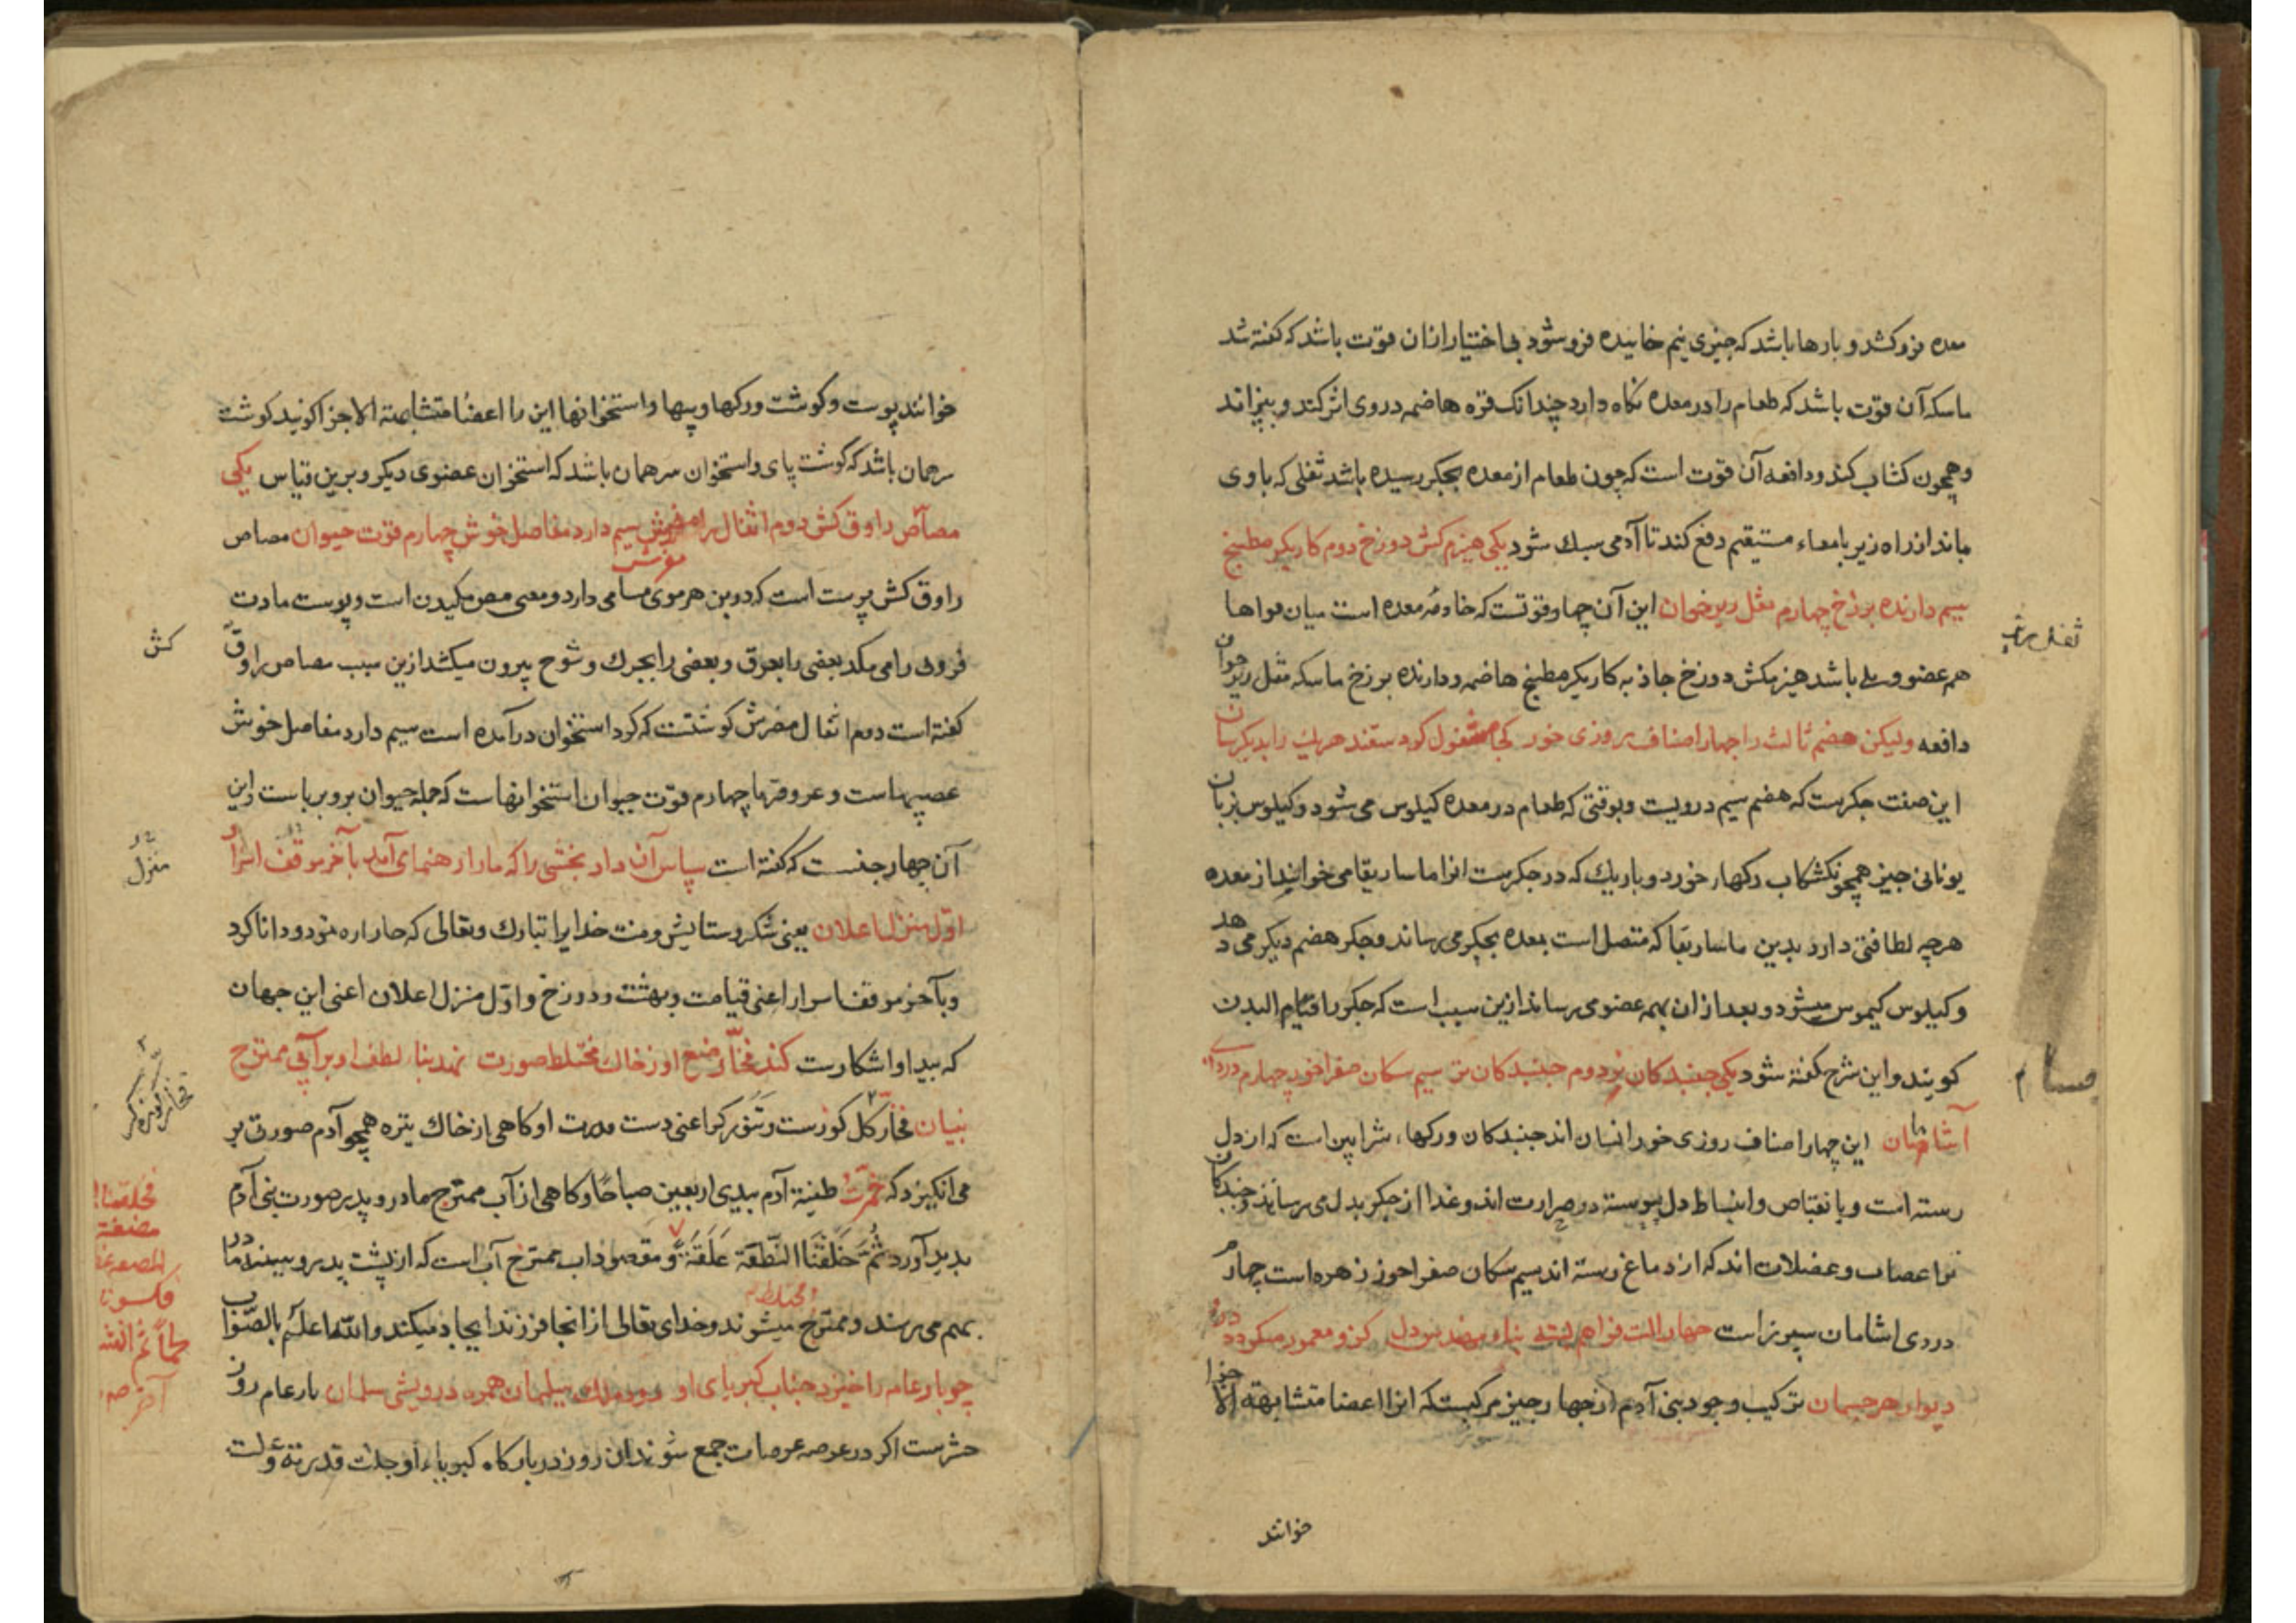 معده فرو کشد و بارها باشد که چیزی نیم خائیده فرو شود بی اختیار ازان قوّت باشد که کفته شد
ماسکه آن قوّت باشد که طعام را در معده نکاه دارد چندانک قوّه هاضمه در وی اثر کند و بپزاند
و همچون کشاب کند و دافعه آن قوّت است که چون طعام از معده بجکر رسیده باشد ثفلی که با وی
ماند از راه زیر بامعاء مستیقم دفع کند تا آدمی سبک شود یکی هیزم کش دوزخ دوم کاریکر مطبخ
سیم دارنده برزخ چهارم ثفل ریز خوان این آن چهار قوتست که خادمهٔ معده است میان هواها
هم عضو ولی باشد هیزمکش دوزخ جاذبه کاریکر مطبخ هاضمه و دارنده برزخ ماسکه ثفل ریز خوان
دافعه ولیکن هضم ثالث را چهار اصناف روزی خور کجا مشغول کرد ستقند هریک را بدیکرسان
این صفت جکرست که هضم سیم درویست و بوقتی که طعام در معده کیلوس می شود و کیلوس بزبان
یونانی چیز همچو نکشکاب رکهار خورد و باریک که در جکرست انرا ماساریقا می خوانند از معده
هرچه لطافتی دارد بدین ماساریقا که متصل است بمعده بجکر می رساند و جکر هضم دیکر می دهد
و کیلوس کیموس میشود و بعد ازان بهمه عضو می رساند ازین سبب است که جکر را قیام البدن
کویند و این شرح کفته شود یکی جنبدکان نر دوم جنبدکان تر سیم سکان صفرا خور چهارم دردی
آشامان این چهار اصناف روزی خور انسان اند جنبدکان ورکها، شرایین است که از دل
رسته است و بانقباض و انبساط دل پیوسته در حرارت اند و غذا از جکر بدل می رسانند و جنبدکان
تر اعصاب و عضلات اند که از دماغ رسته اند سیم سکان صفرا خور زهره است چهارم
دردی اشامان سپرز است چهار الت فراهم پناه مهندس دل کزو معمور میکردد در و
دیوار هر جسمان ترکیب وجود بنی آدم از چهار چیز مرکبست که انرا اعضا متشابهة الاجزا
خوانند
ثفل
مسام
خوانند پوست و کوشت و رکها و پیها و استخوانها این را اعضا متشابهة الاجزا کوئید کوشت
سرهمان باشد که کوشت پای و استخوان سرهمان باشد که استخوان عضوی دیکر و برین قیاس یکی
مصّاص راوق کش دوم اثفال را مفرش سیم دارد مفاصل خوش چهارم قوّت حیوان مصاص
مفرش
راوق کش پوست است که در بن هر موی مسامی دارد و معنی مص مکیدن است و پوست مادت
فزونی را می مکد بعضی را بعرق و بعضی را بجرک و شوخ بیرون میکشد ازین سبب مصاص راوق
کش
کفته است دوم اثفال مفرش کوشتست که کرد استخوان درآمده است سیم دارد مفاصل خوش
عصبهاست و عروقها چهارم قوّت حیوان استخوانهاست که جمله حیوان برو برپاست و این
آن چهار جنسست که کفته است سپاس آن داد بخشی را که مارا رهنمای آمد بآخر موقف اسرار
منزل
اوّل منزل اعلان یعنی شکر و ستایش و منت خدایرا تبارک و تعالی که مارا راه نمود و دانا کرد
و بآخر موقف اسرار اعنی قیامت و بهشت و دوزخ و اوّل منزل اعلان اعنی این جهان
که پیدا و اشکارست کند فخّار صنع او ز خاک مختلط صورت نهد بنا، لطف او بر آبی ممتزج
بنیان فخّار کل کوزست و تنورکر اعنی دست قدرت او کاهی از خاک تیره همچو آدم صورتی بر
می انکیزد که خمّرت طینة آدم بیدی اربعین صباحا و کاهی از آب ممتزج مادر و پدر صورت بنی آدم
بدید آورد ثُمَّ خَلَقْنَا النُّطْفَةَ عَلَقَةً و مقصود اب ممتزج آب است که از پشت پدر و سینه مادر
بهم می رسند و ممتزج میشوند و خدای تعالی از انجا فرزند ایجاد میکند و اللّه اعلم بالصّواب
چو بار عام را خیزد جناب کبریای او رود ملک سلیمان همره درویشی سلمان بار عام روز
حشرست اکر در عرصه عرصات جمع شوند ان روز در بارکاه کبریاء او جلّت قدرته دولت
فخلقنا ا
مضغة
فکسونا
آخر